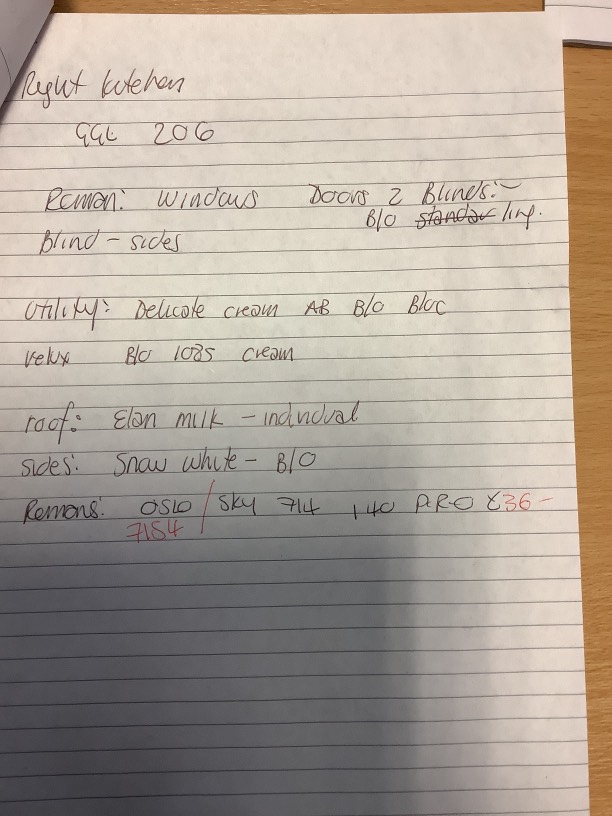 Right kitchen
GGL 206
Roman: Windows Doors 2 Blinds:-
B/O standar ling.
Blind - sides
Utility: Delicate cream AB B/O Bloc
Velux B/O 1085 cream
roof: Elan milk - individual
sides: Snow white - B/O
Romans: OSLO / Sky 714 140 PRO £36 -
7154